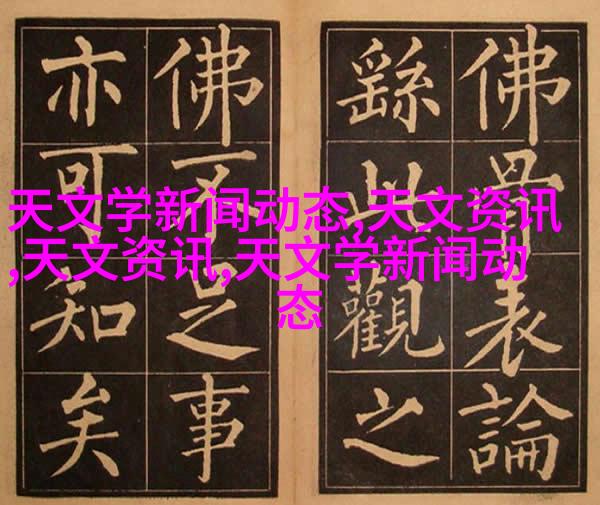 佛骨表論
繇此觀之
佛不足事
亦可知矣
天文学新闻动态,天文资讯
,天文资讯,天文学新闻动
态